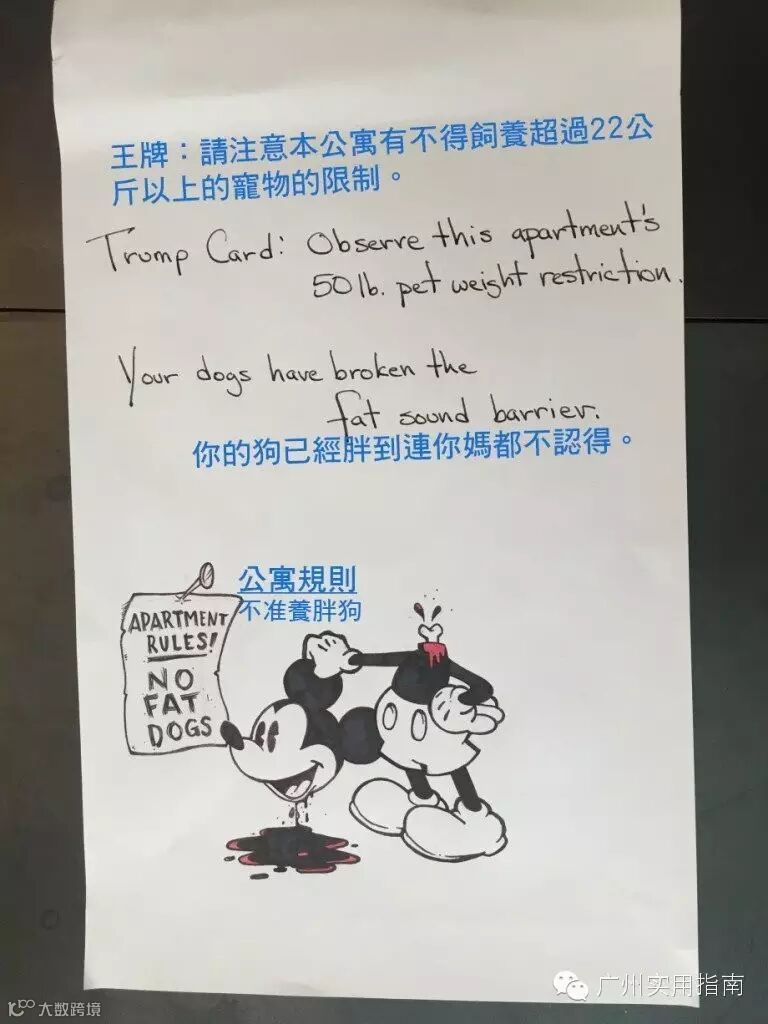 王牌：請注意本公寓有不得飼養超過22公
斤以上的寵物的限制。
Trump Card: Observe this apartment's
50 lb. pet weight restriction.
Your dogs have broken the
fat sound barrier.
你的狗已經胖到連你媽都不認得。
公寓規則
不准養胖狗
APARTMENT
RULES!
NO
FAT
DOGS
广州实用指南
大数跨境